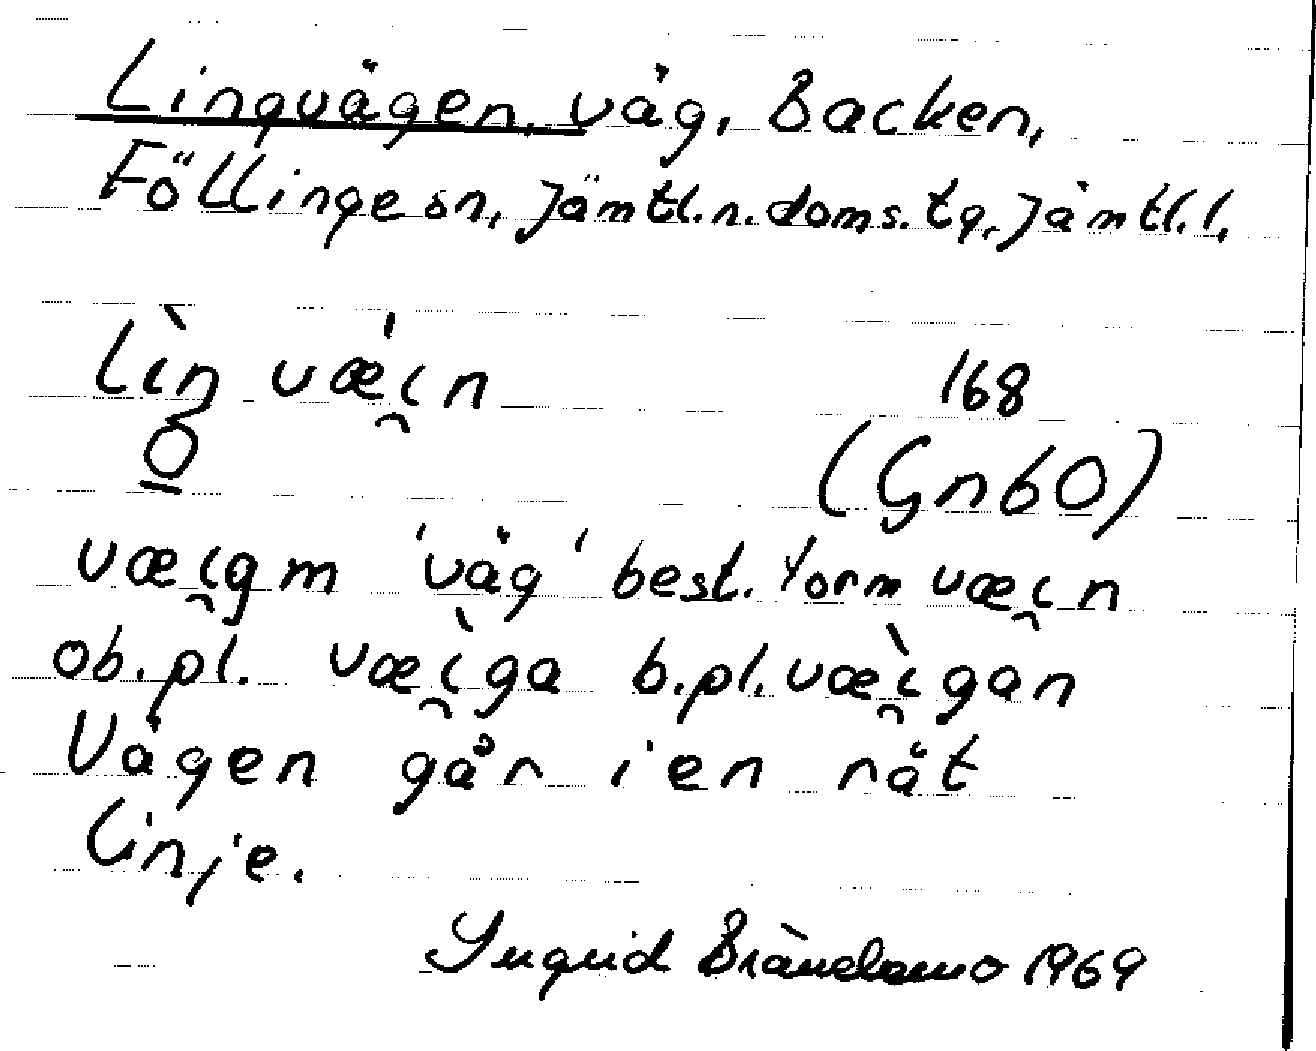 Lingvägen, väg, Backen,
Föllinge sn, Jämtl.n.doms.tg, Jämtl.l.
lìŋ vǽi̯n
168
(Gn60)
væi̯g m 'väg' best. form væi̯n
ob.pl. væ̀i̯ga b.pl. væ̀i̯gan
Vägen går i en rät
linje.
Ingrid Brändemo 1969